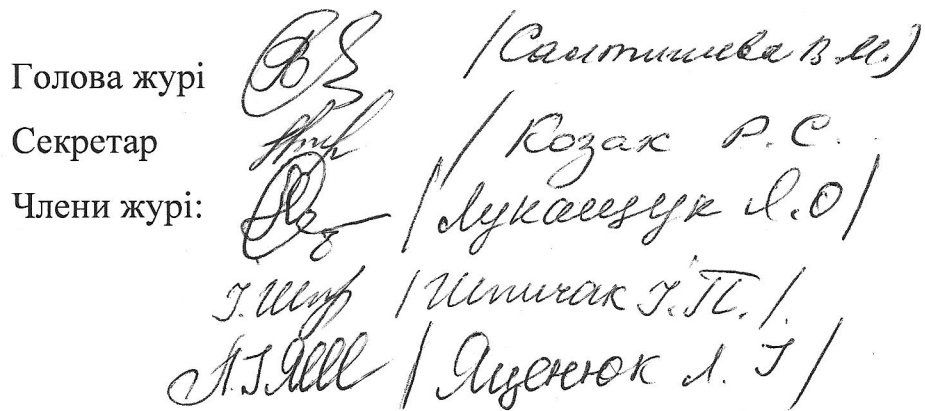 Голова журі /Самтишева В М.)
Секретар /Козак Р. С.
Члени журі: /Лукащук Я.О/
І.Шпр /Шпичак І.П./
/Яценюк Л. І/